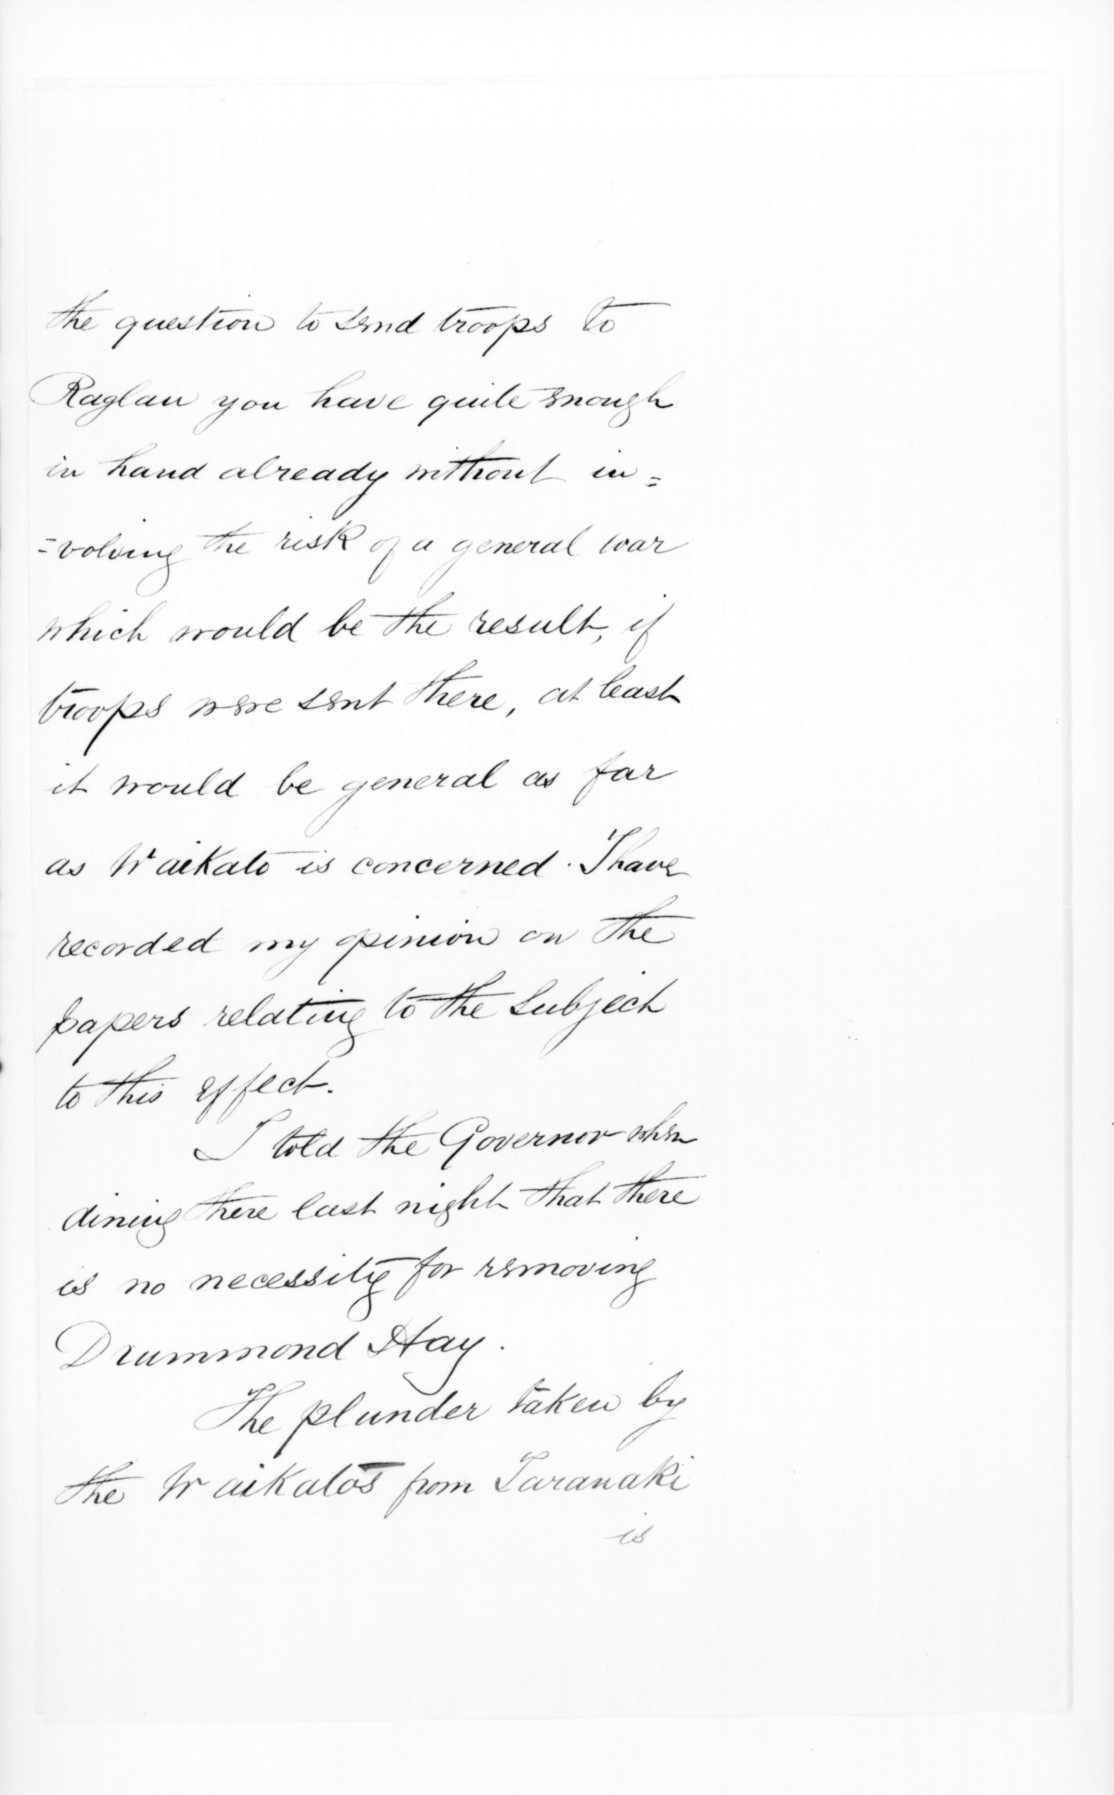 the question to send troops to
Raglan you have quite enough
in hand already without in=
=volving the risk of a general war
which would be the result, if
troops were sent there, at least
it would be general as far
as Waikato is concerned. I have
recorded my opinion on the
papers relating to the Subject
to this effect.
I told the Governor when
dining there last night that there
is no necessity for removing
Drummond Hay.
The plunder taken by
the Waikatos from Taranaki
is